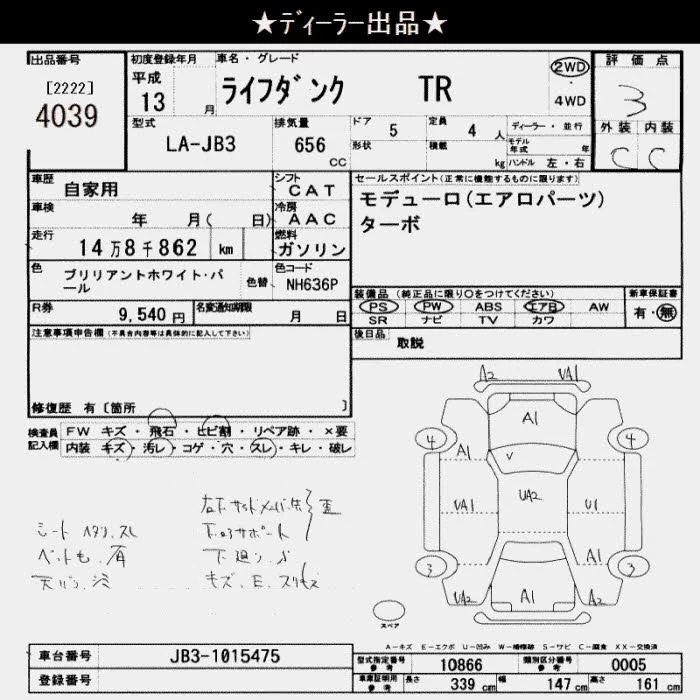 ★ディーラー出品★
出品番号
[2222]
4039
初度登録年月
平成
13 月
車名・グレード
ライフダンク TR
2WD
・
4WD
評価点
3
外装 内装
C C
型式
LA-JB3
排気量
656
CC
ドア 5
定員 4 人
形状
積載 kg
ディーラー・並行
モデル年式 年
ハンドル 左・右
車歴
自家用
シフト
CAT
車検
年 月( 日)
冷房
AAC
走行
14万8千862 km
燃料
ガソリン
色
ブリリアントホワイト・パール
色替
色コード
NH636P
R券
9,540 円
名変通知期限
月 日
セールスポイント(正常に機能するものに限ります)
モデューロ(エアロパーツ)
ターボ
装備品 (純正品に限り○をつけてください)
PS PW ABS エアB AW
SR ナビ TV カワ
新車保証書
有・無
後日品
取説
注意事項申告欄(不具合内容等は具体的に記入して下さい)
修復歴 有〔箇所 〕
検査員
記入欄
FW キズ・飛石・ヒビ割・リペア跡・×要
内装 キズ・汚レ・コゲ・穴・スレ・キレ・破レ
シート ヘタリ、スレ
天バリ
下廻り
キズ、E、
A2 UA1
A1
4 4
A1
V
UA1 UA2 U1
A1
3 3
UA2 A1 A2
スペア
A-キズ E-エクボ U-凹み W-補修跡 S-サビ C-腐食 XX-交換済
車台番号
JB3-1015475
登録番号
型式指定番号
参考
10866
類別区分番号
参考
0005
車庫証明用
参考
長さ 339 cm 幅 147 cm 高さ 161 cm